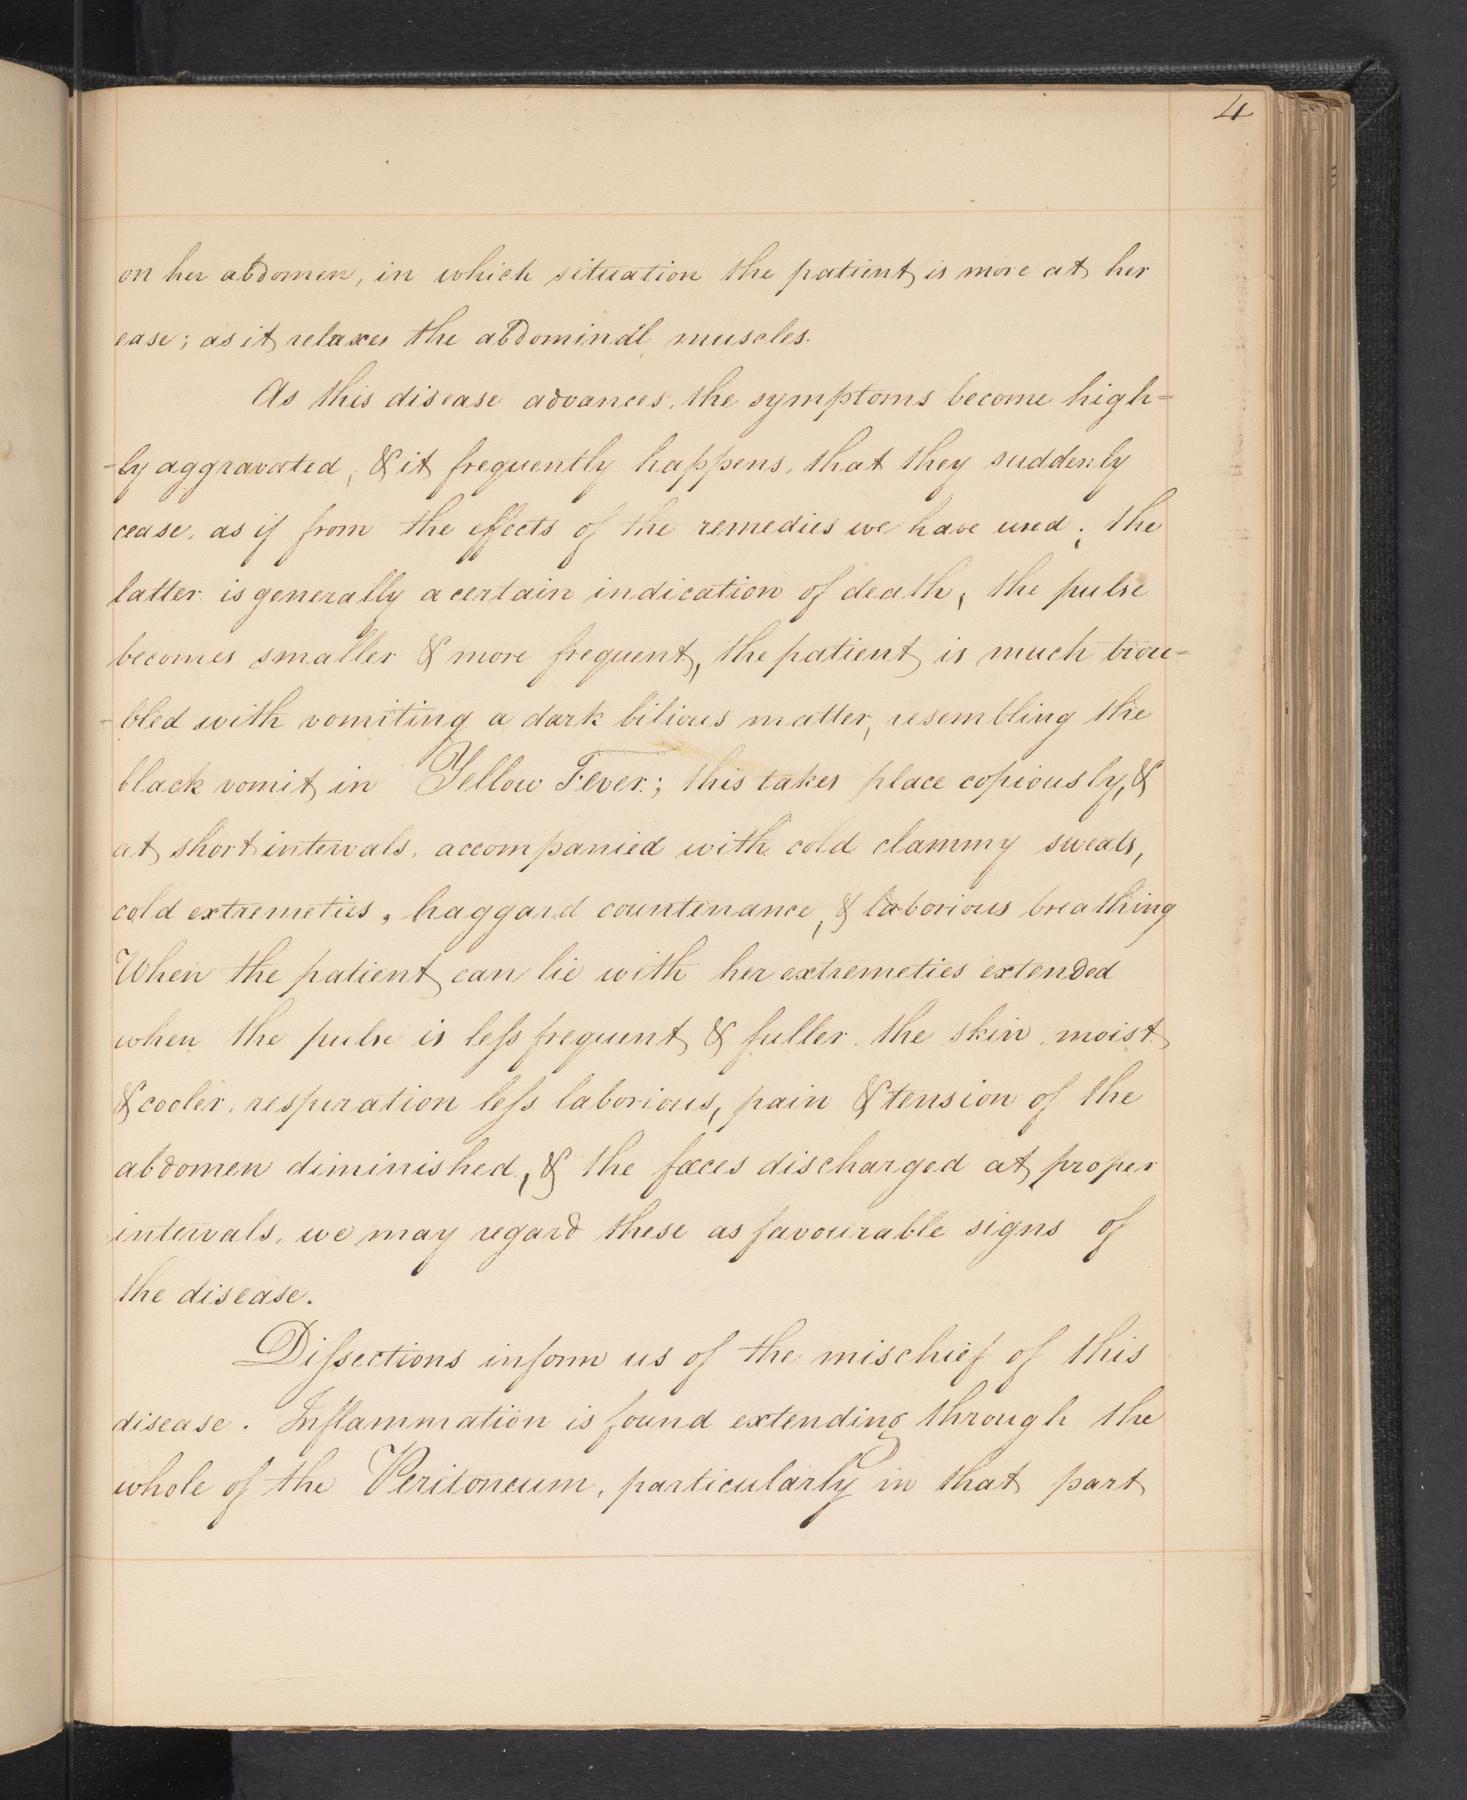 4
on her abdomen, in which situation the patient is more at her
ease; as it relaxes the abdominal muscles.
As this disease advances, the symptoms become high-
-ly aggravated, & it frequently happens, that they suddenly
cease, as if from the effects of the remedies we have used; the
latter is generally a certain indication of death, the pulse
becomes smaller & more frequent, the patient is much trou-
-bled with vomiting a dark bilious matter, resembling the
black vomit in Yellow Fever; this takes place copiously, &
at short intervals, accompanied with cold clammy sweats,
cold extremeties, haggard countenance, & laborious breathing
When the patient can lie with her extremeties extended
when the pulse is leſs frequent & fuller. the skin moist
& cooler, respiration leſs laborious, pain & tension of the
abdomen diminished, & the fæces discharged at proper
intervals, we may regard these as favourable signs of
the disease.
Diſsections inform us of the mischief of this
disease. Inflammation is found extending through the
whole of the Peritoneum, particularly in that part